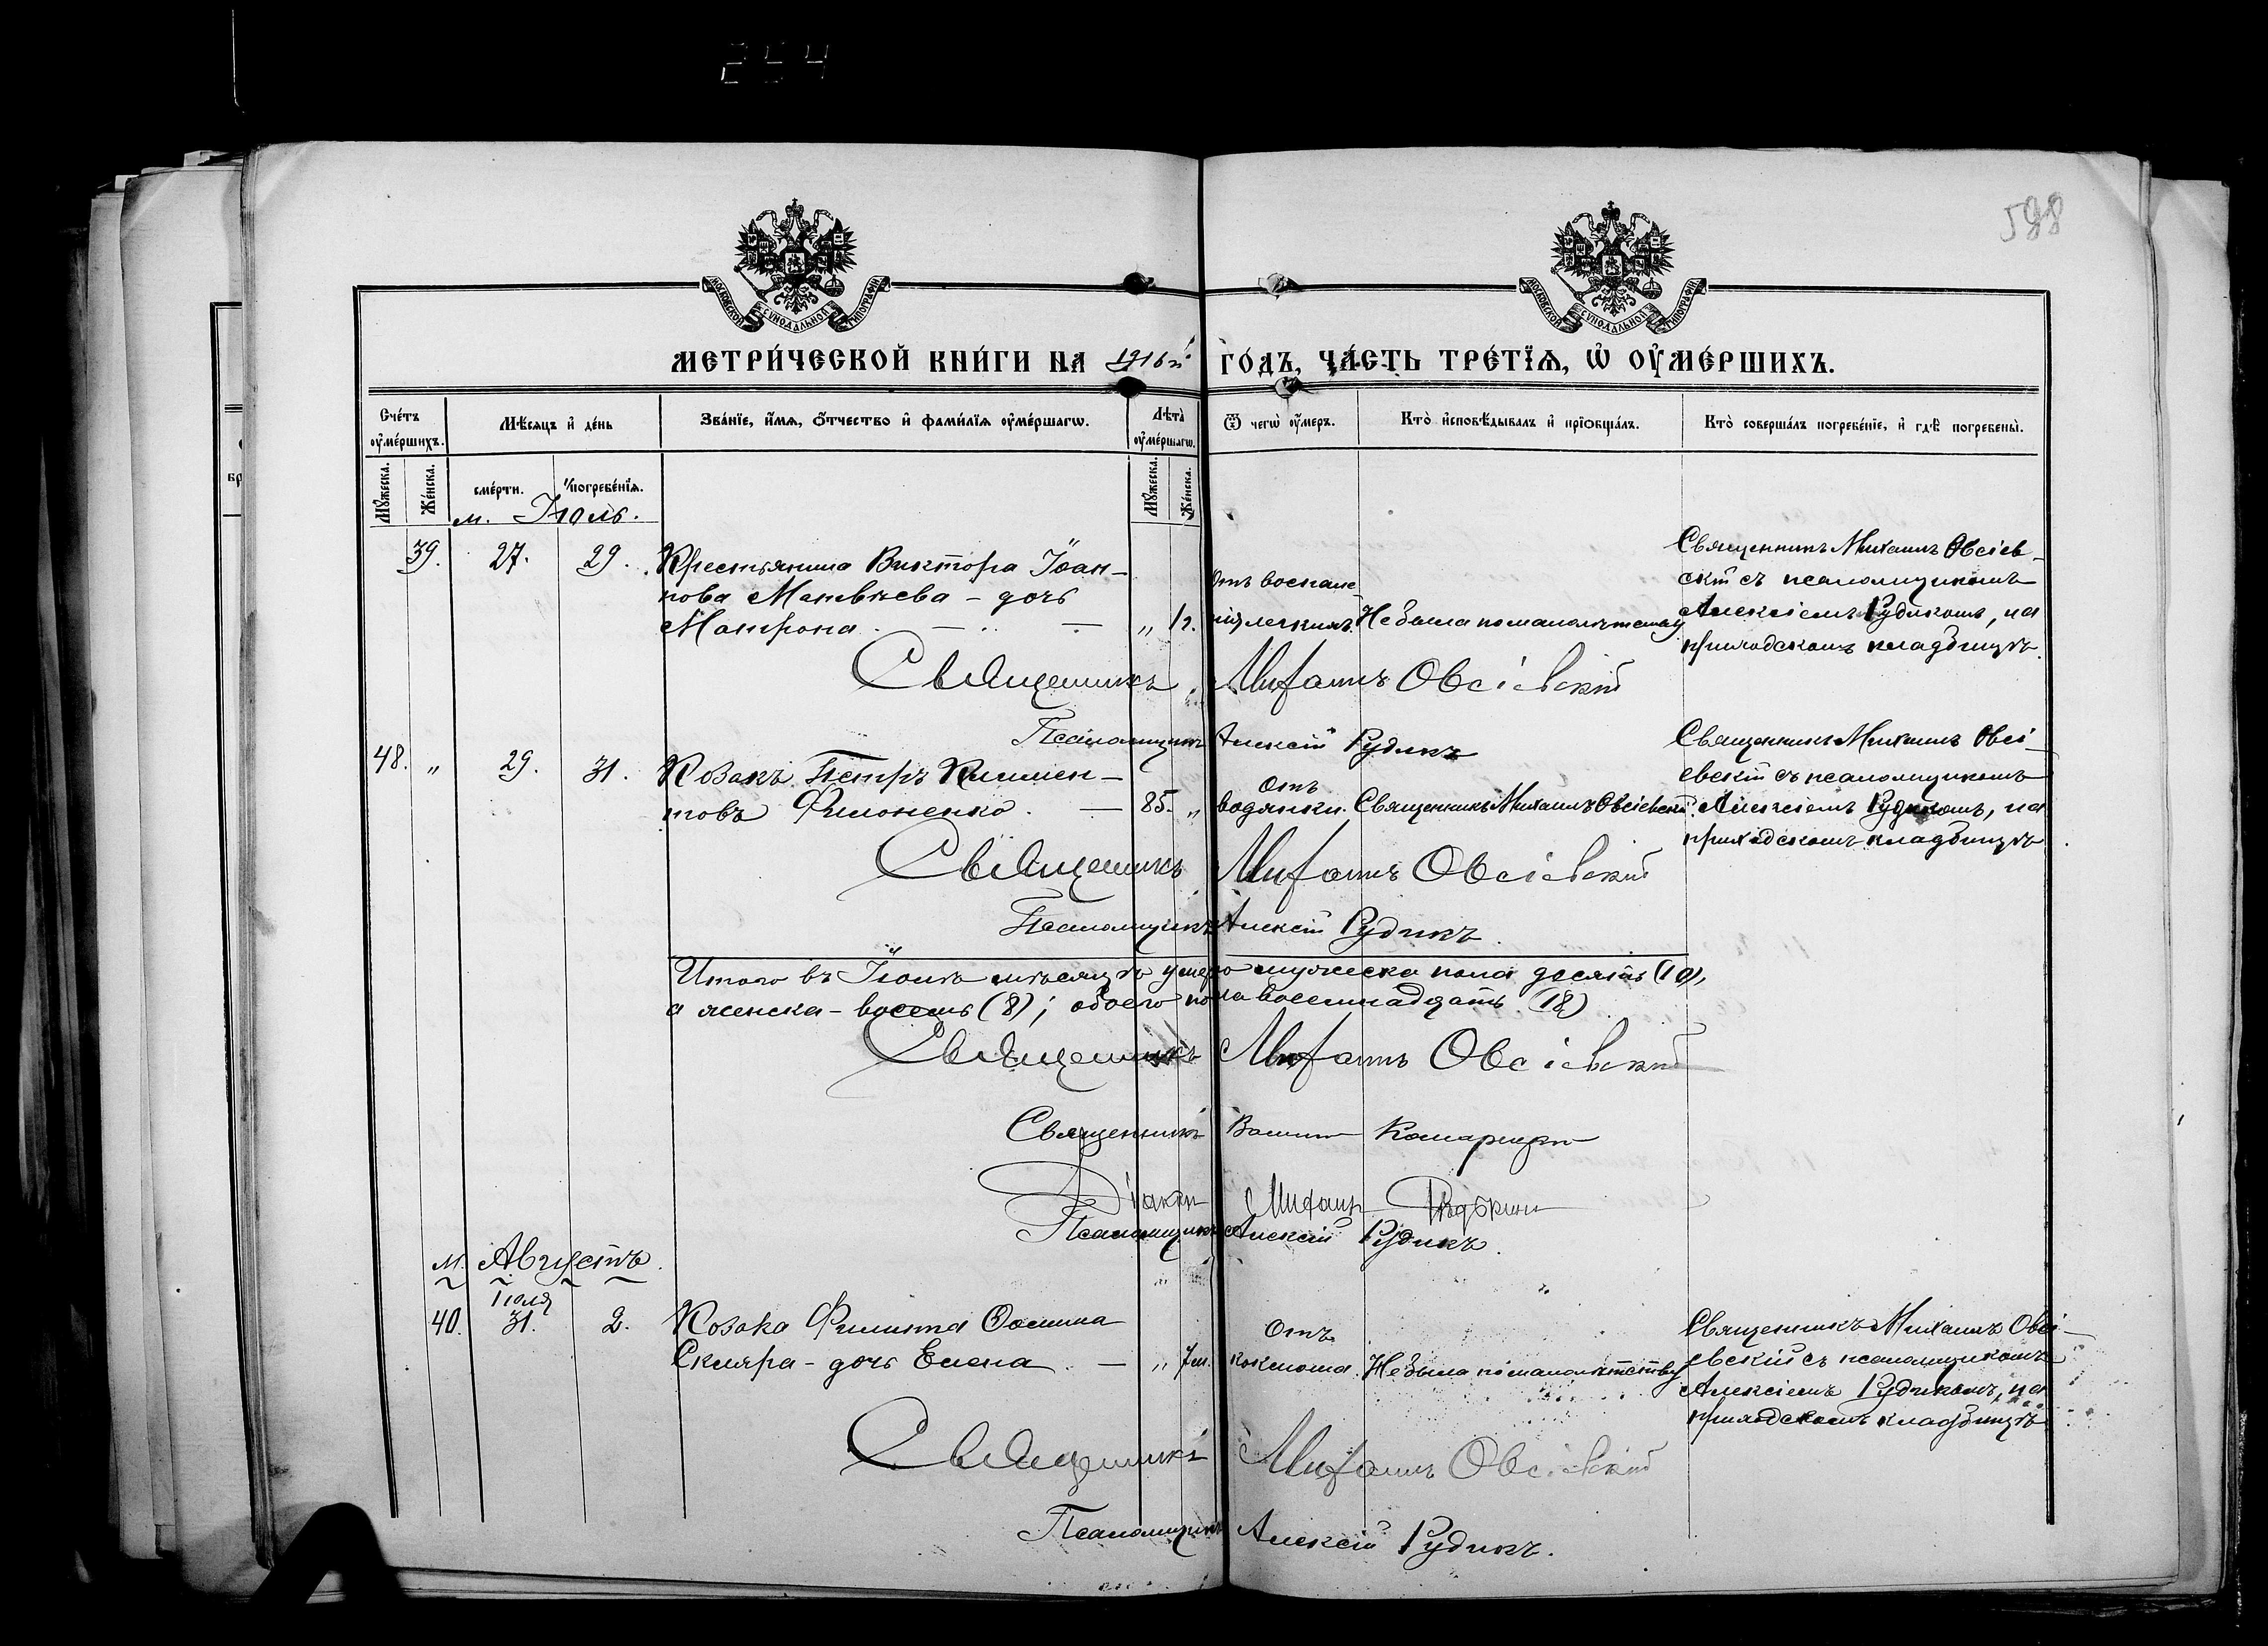 254
598
МОСКОВСКОЙ СУНОДАЛЬНОЙ ТИПОГРАФІИ
МОСКОВСКОЙ СУНОДАЛЬНОЙ ТИПОГРАФІИ
МЕТРИ́ЧЕСКОЙ КНИ́ГИ НА 1916й ГО́ДЪ, ЧА́СТЬ ТРЕ́ТІѦ, Ѡ ОУ҆МЕ́РШИХЪ.
Сче́тъ оу҆ме́ршихъ.
Мѣсяцъ и҆ де́нь
Зва́нїе, и҆́мѧ, ѻ҆́тчество и҆ фами́лїѧ оу҆ме́ршагѡ.
Лѣта̀ оу҆ме́ршагѡ.
Ѿ чегѡ̀ оу҆́меръ.
Кто̀ и҆сповѣ́дывалъ и҆ прїѻбща́лъ.
Кто̀ соверша́лъ погребе́нїе, и҆ гдѣ̀ погребены̀.
Мꙋ́жеска.
Же́нска.
сме́рти.
погребе́нїѧ.
Мꙋ́жеска.
Же́нска.
м. Іюль.
39. 27. 29. Крестьянина Виктора Іоан-
нова Матвѣева - дочь
Матрона. „ 1 г.
Отъ воспале-
нія легкихъ. Не была по малолѣтству
Священникъ Михаилъ Овсіев-
скій съ псаломщикомъ
Алексіемъ Рудикомъ, на
приходскомъ кладбищѣ.
Священникъ Михаилъ Овсіевскій
Псаломщикъ Алексій Рудикъ
48. „ 29. 31. Козакъ Петръ Климен-
товъ Филоненко. 85. „
Отъ
водянки. Священникъ Михаилъ Овсіевскій.
Священникъ Михаилъ Овсі-
евскій съ псаломщикомъ
Алексіемъ Рудикомъ, на
приходскомъ кладбищѣ
Священникъ Михаилъ Овсіевскій
Псаломщикъ Алексій Рудикъ.
Итого въ Іюлѣ мѣсяцѣ умерло мужеска пола десять (10),
а женска - восемь (8); обоего пола восемнадцать (18)
Священникъ Михаилъ Овсіевскій
Священникъ
Діаконъ Михаилъ
Псаломщикъ Алексій Рудикъ.
м. Августъ.
Іюля
40. 31. 2. Козака Филиппа Ѳомина
Скляра - дочь Елена. „ 7 м.
Отъ
коклюша. Не была по малолѣтству
Священникъ Михаилъ Овсі-
евскій съ псаломщикомъ
Алексіемъ Рудикомъ, на
приходскомъ кладбищѣ
Священникъ Михаилъ Овсіевскій
Псаломщикъ Алексій Рудикъ.